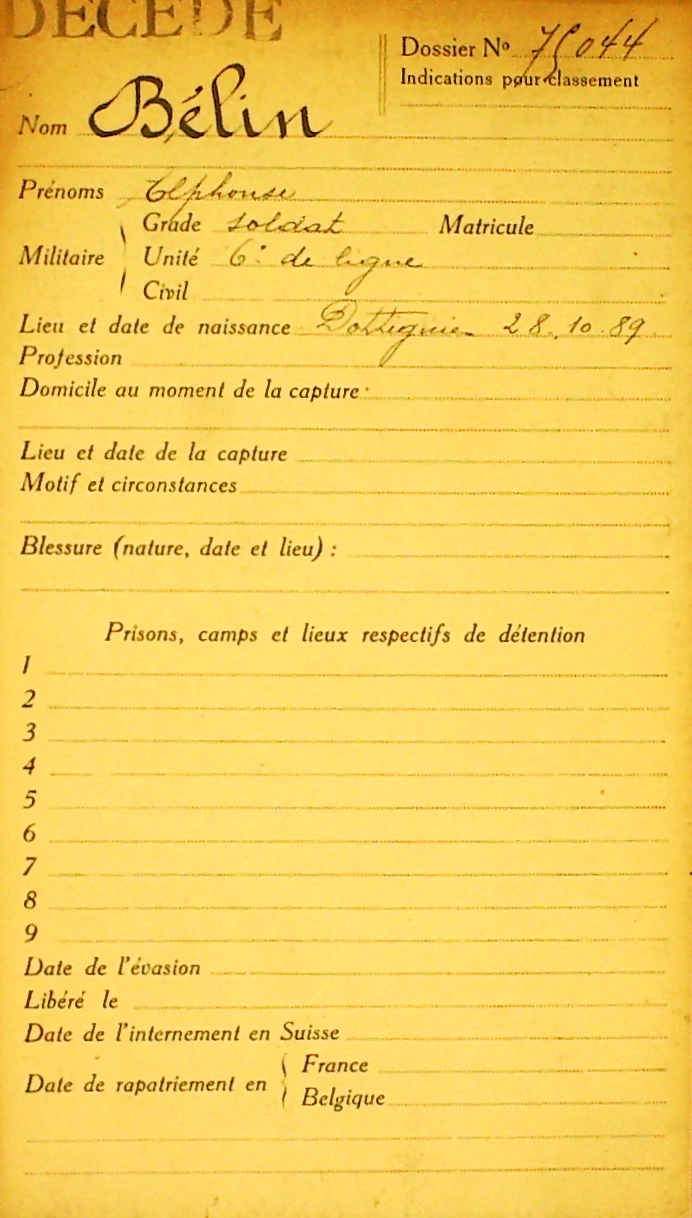 DÉCÉDÉ
Dossier Nº 75044
Indications pour classement
Nom Bélin
Prénoms Alphonse
Grade soldat Matricule
Militaire Unité 6e de ligne
Civil
Lieu et date de naissance Dottignies 28.10.89
Profession
Domicile au moment de la capture
Lieu et date de la capture
Motif et circonstances
Blessure (nature, date et lieu) :
Prisons, camps et lieux respectifs de détention
1
2
3
4
5
6
7
8
9
Date de l'évasion
Libéré le
Date de l'internement en Suisse
France
Date de rapatriement en
Belgique